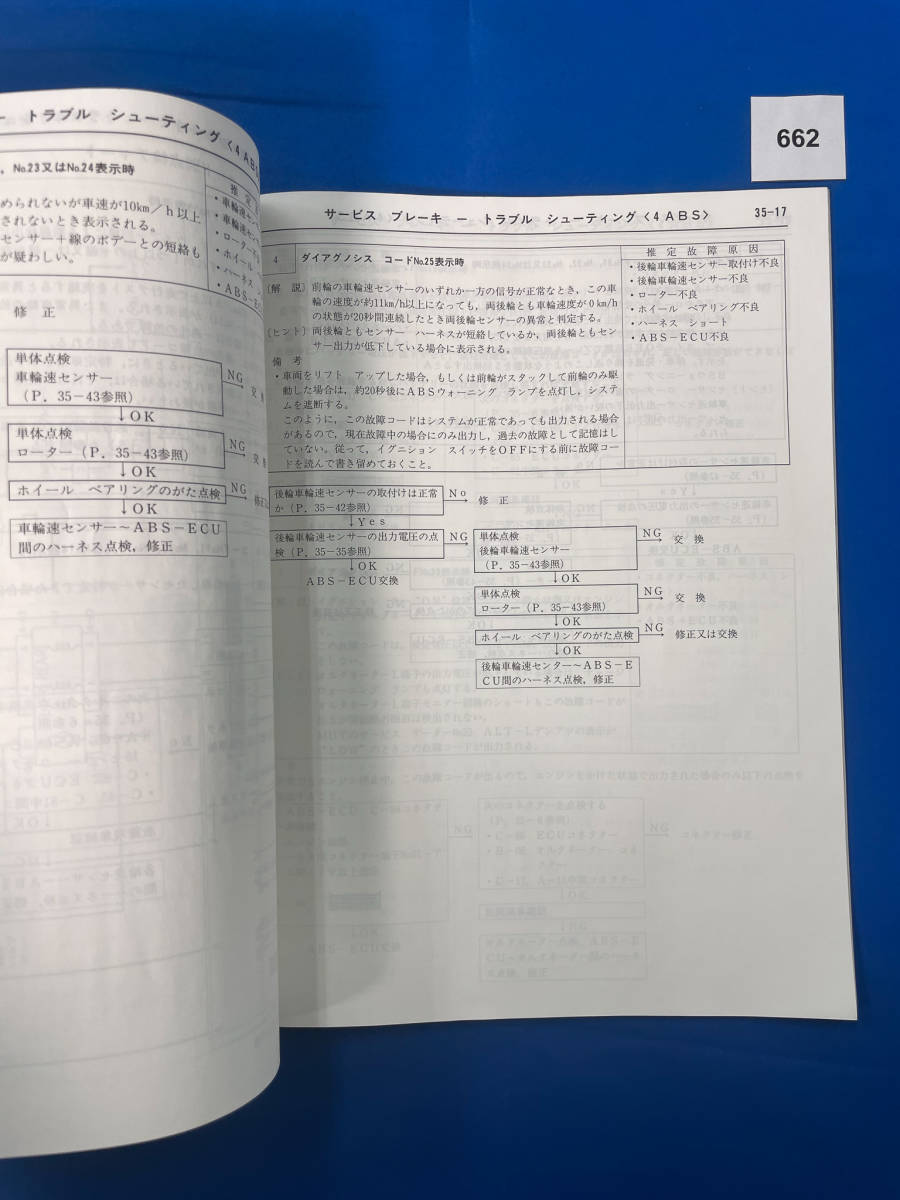 662
ー トラブル シューティング〈4AB
，No.23又はNo.24表示時
推 定
められないが車速が10km／h以上
されないとき表示される。
センサー＋線のボデーとの短絡も
が疑わしい。
・車輪速セン
・車輪速セン
・ローター
・ホイール
・ハーネス
・ABS－E
修 正
単体点検
車輪速センサー
（P．35－43参照）
NG
交 換
↓OK
単体点検
ローター（P．35－43参照）
NG
交 換
↓OK
ホイール ベアリングのがた点検
NG
↓OK
車輪速センサー〜ABS－ECU
間のハーネス点検，修正
サービス ブレーキ ー トラブル シューティング〈4ABS〉 35-17
4 ダイアグノシス コードNo.25表示時
推 定 故 障 原 因
・後輪車輪速センサー取付け不良
・後輪車輪速センサー不良
・ローター不良
・ホイール ベアリング不良
・ハーネス ショート
・ABS－ECU不良
〔解 説〕前輪の車輪速センサーのいずれか一方の信号が正常なとき，この車
輪の速度が約11km/h以上になっても，両後輪とも車輪速度が0km/h
の状態が20秒間連続したとき両後輪センサーの異常と判定する。
〔ヒント〕両後輪ともセンサー ハーネスが短絡しているか，両後輪ともセン
サー出力が低下している場合に表示される。
備 考
・車両をリフト アップした場合，もしくは前輪がスタックして前輪のみ駆
動した場合は，約20秒後にABSウォーニング ランプを点灯し，システ
ムを遮断する。
このように，この故障コードはシステムが正常であっても出力される場合
があるので，現在故障中の場合にのみ出力し，過去の故障として記憶はし
ていない。従って，イグニション スイッチをOFFにする前に故障コー
ドを読んで書き留めておくこと。
後輪車輪速センサーの取付けは正常
か（P．35－42参照）
No
修 正
↓Yes
後輪車輪速センサーの出力電圧の点
検（P．35－35参照）
NG
↓OK
ABS－ECU交換
単体点検
後輪車輪速センサー
（P．35－43参照）
NG
交 換
↓OK
単体点検
ローター（P．35－43参照）
NG
交 換
↓OK
ホイール ベアリングのがた点検
NG
修正又は交換
↓OK
後輪車輪速センター〜ABS－E
CU間のハーネス点検，修正